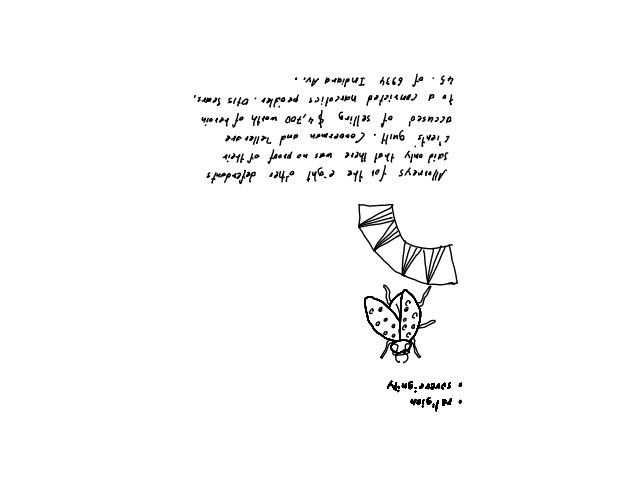 • religion
• sovereignty
Attorneys for the eight other defendants
said only that there was no proof of their
clients' guilt. Cooverman and Teller are
accused of selling $ 4,700 worth of heroin
to a convicted narcotics peddler. Otis Sears,
45. of 6934 Indiana Av. .